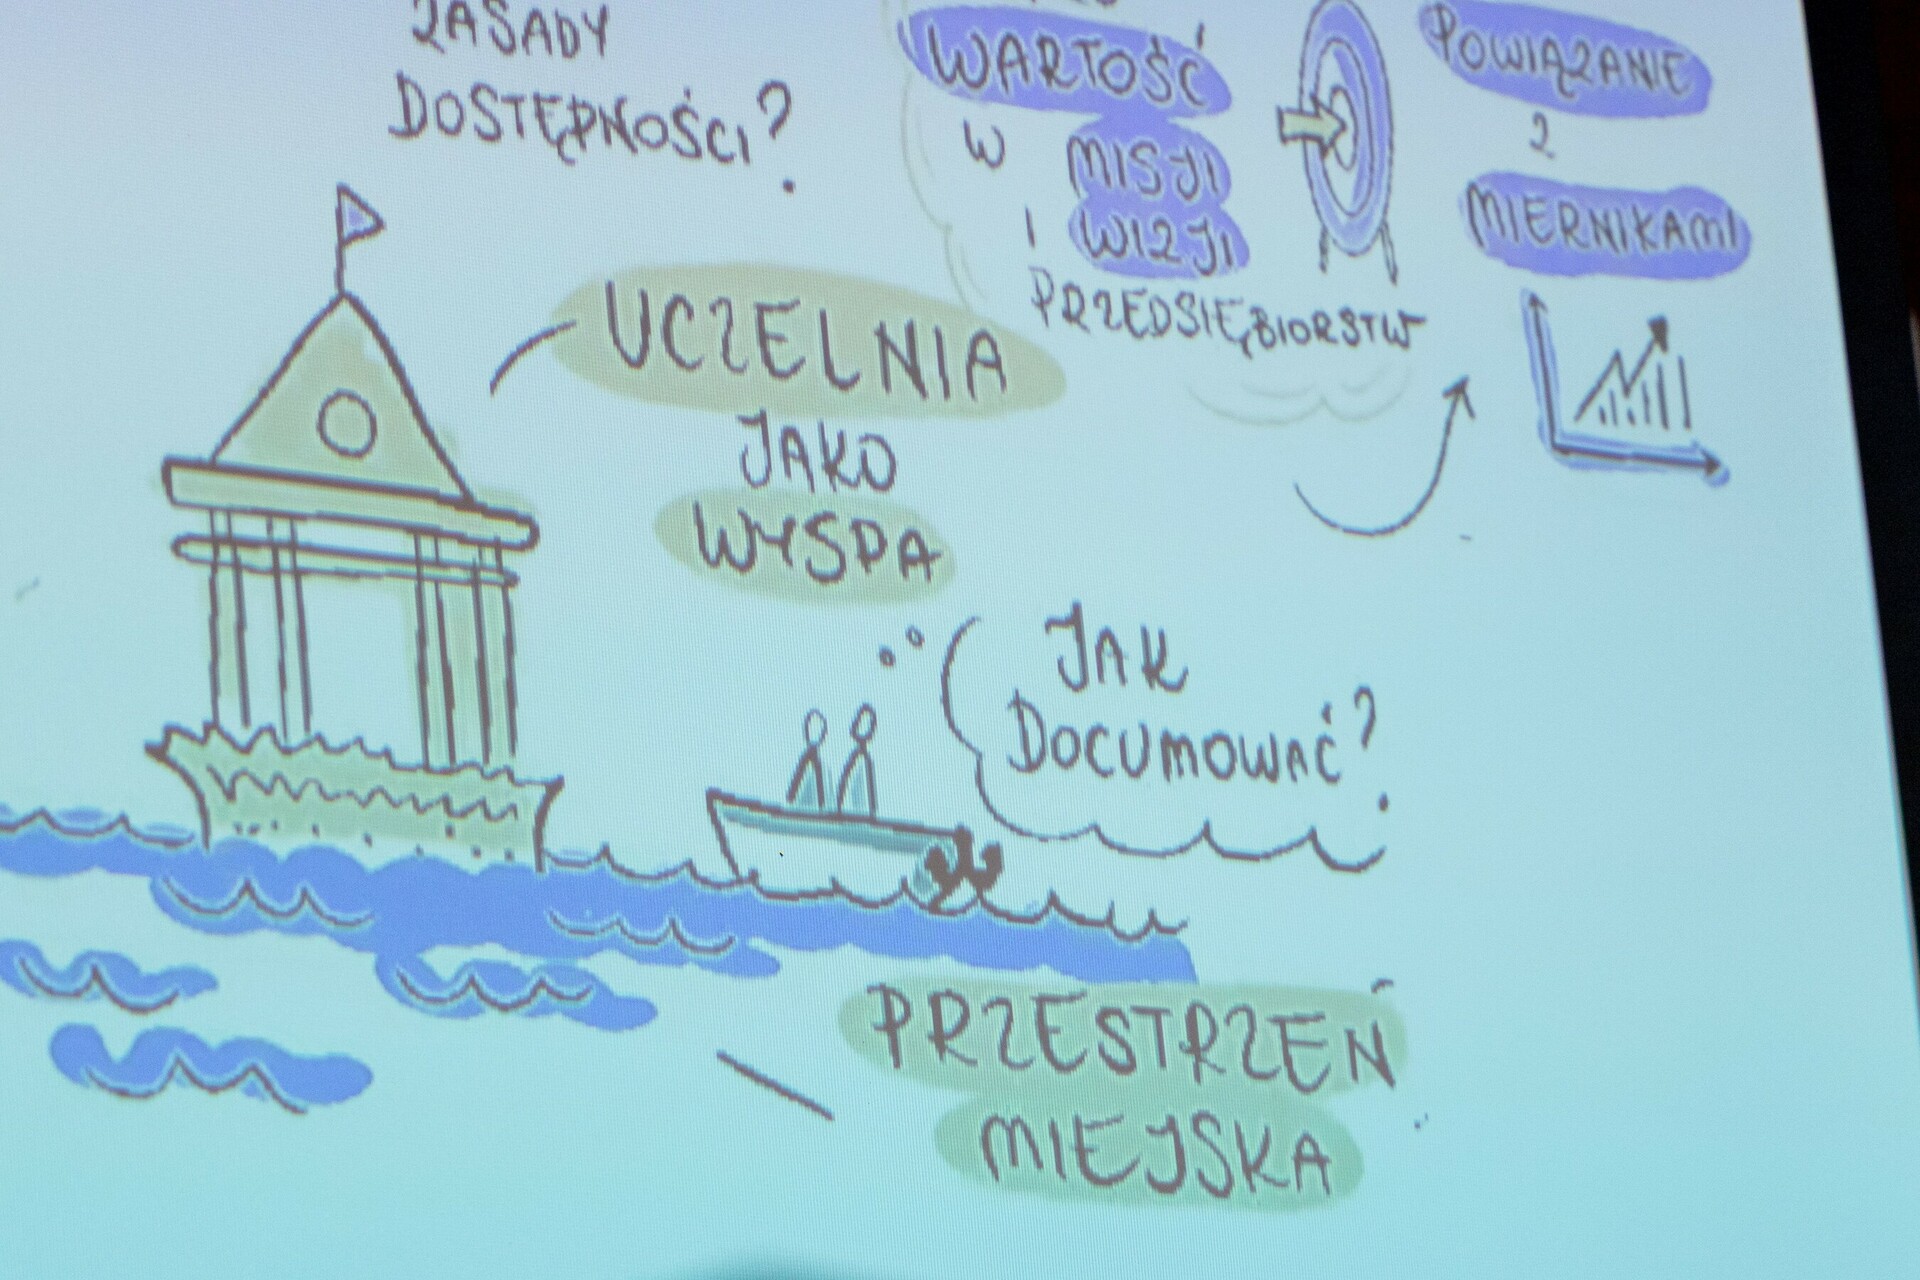 ZASADY
DOSTĘPNOŚCI?
WARTOŚĆ
W MISJI
I WIZJI
PRZEDSIĘBIORSTW
POWIĄZANIE
Z
MIERNIKAMI
UCZELNIA
JAKO
WYSPA
JAK
DOCUMOWAĆ?
PRZESTRZEŃ
MIEJSKA